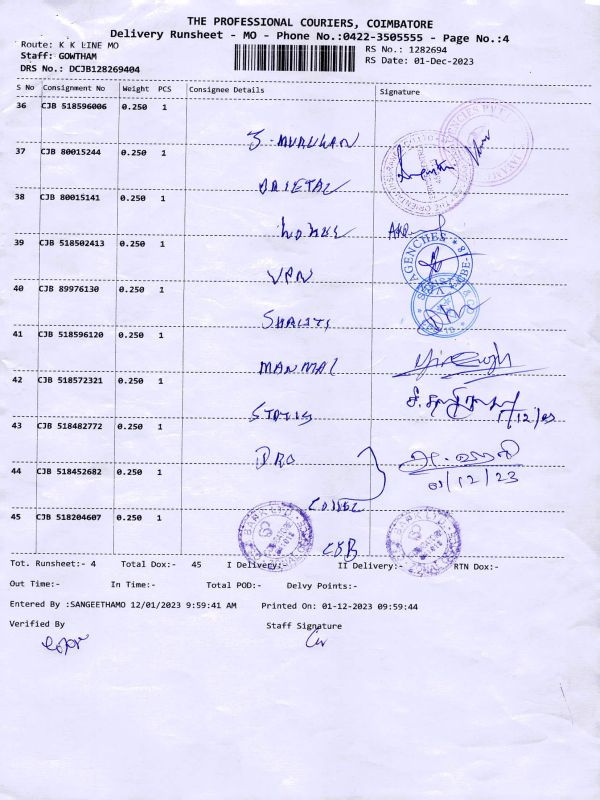 THE PROFESSIONAL COURIERS, COIMBATORE
Delivery Runsheet - MO - Phone No.:0422-3505555 - Page No.:4
Route: K K LINE MO
RS No.: 1282694
Staff: GOWTHAM
RS Date: 01-Dec-2023
DRS No.: DCJB128269404
S No Consignment No Weight PCS Consignee Details Signature
36 CJB 518596006 0.250 1
37 CJB 80015244 0.250 1
38 CJB 80015141 0.250 1
39 CJB 518502413 0.250 1
VPN
40 CJB 89976130 0.250 1
41 CJB 518596120 0.250 1
42 CJB 518572321 0.250 1
43 CJB 518482772 0.250 1
DRO
44 CJB 518452682 0.250 1
01/12/23
45 CJB 518204607 0.250 1
Tot. Runsheet:- 4 Total Dox:- 45 I Delivery:- II Delivery:- RTN Dox:-
Out Time:- In Time:- Total POD:- Delvy Points:-
Entered By :SANGEETHAMO 12/01/2023 9:59:41 AM Printed On: 01-12-2023 09:59:44
Verified By Staff Signature